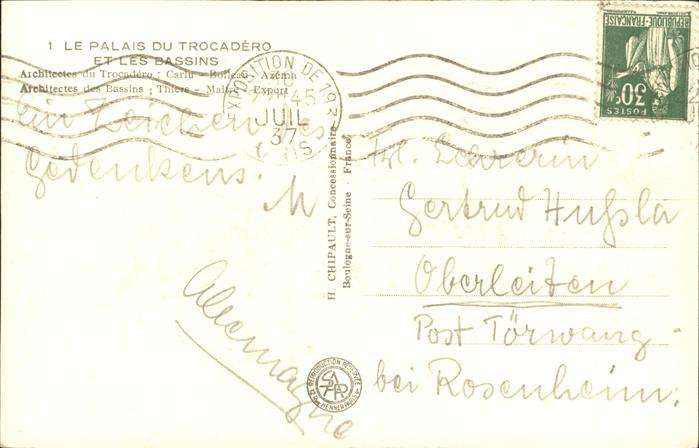 1 LE PALAIS DU TROCADÉRO
ET LES BASSINS
Architectes du Trocadéro : Carlu - Boileau - Azéma
Architectes des Bassins : Thiers - Expert
EXPOSITION DE 1937
JUIL
37
PARIS
RÉPUBLIQUE FRANÇAISE
POSTES
30c
Ein Zeichen des
Gedenkens.
M
H. CHIPAULT, Concessionnaire
Boulogne-sur-Seine - France
Frl. Lehrerin
Gertrud Hußla
Oberleiten
Post Törwang
bei Rosenheim.
Allemagne
REPRODUCTION RÉSERVÉE
SAPR